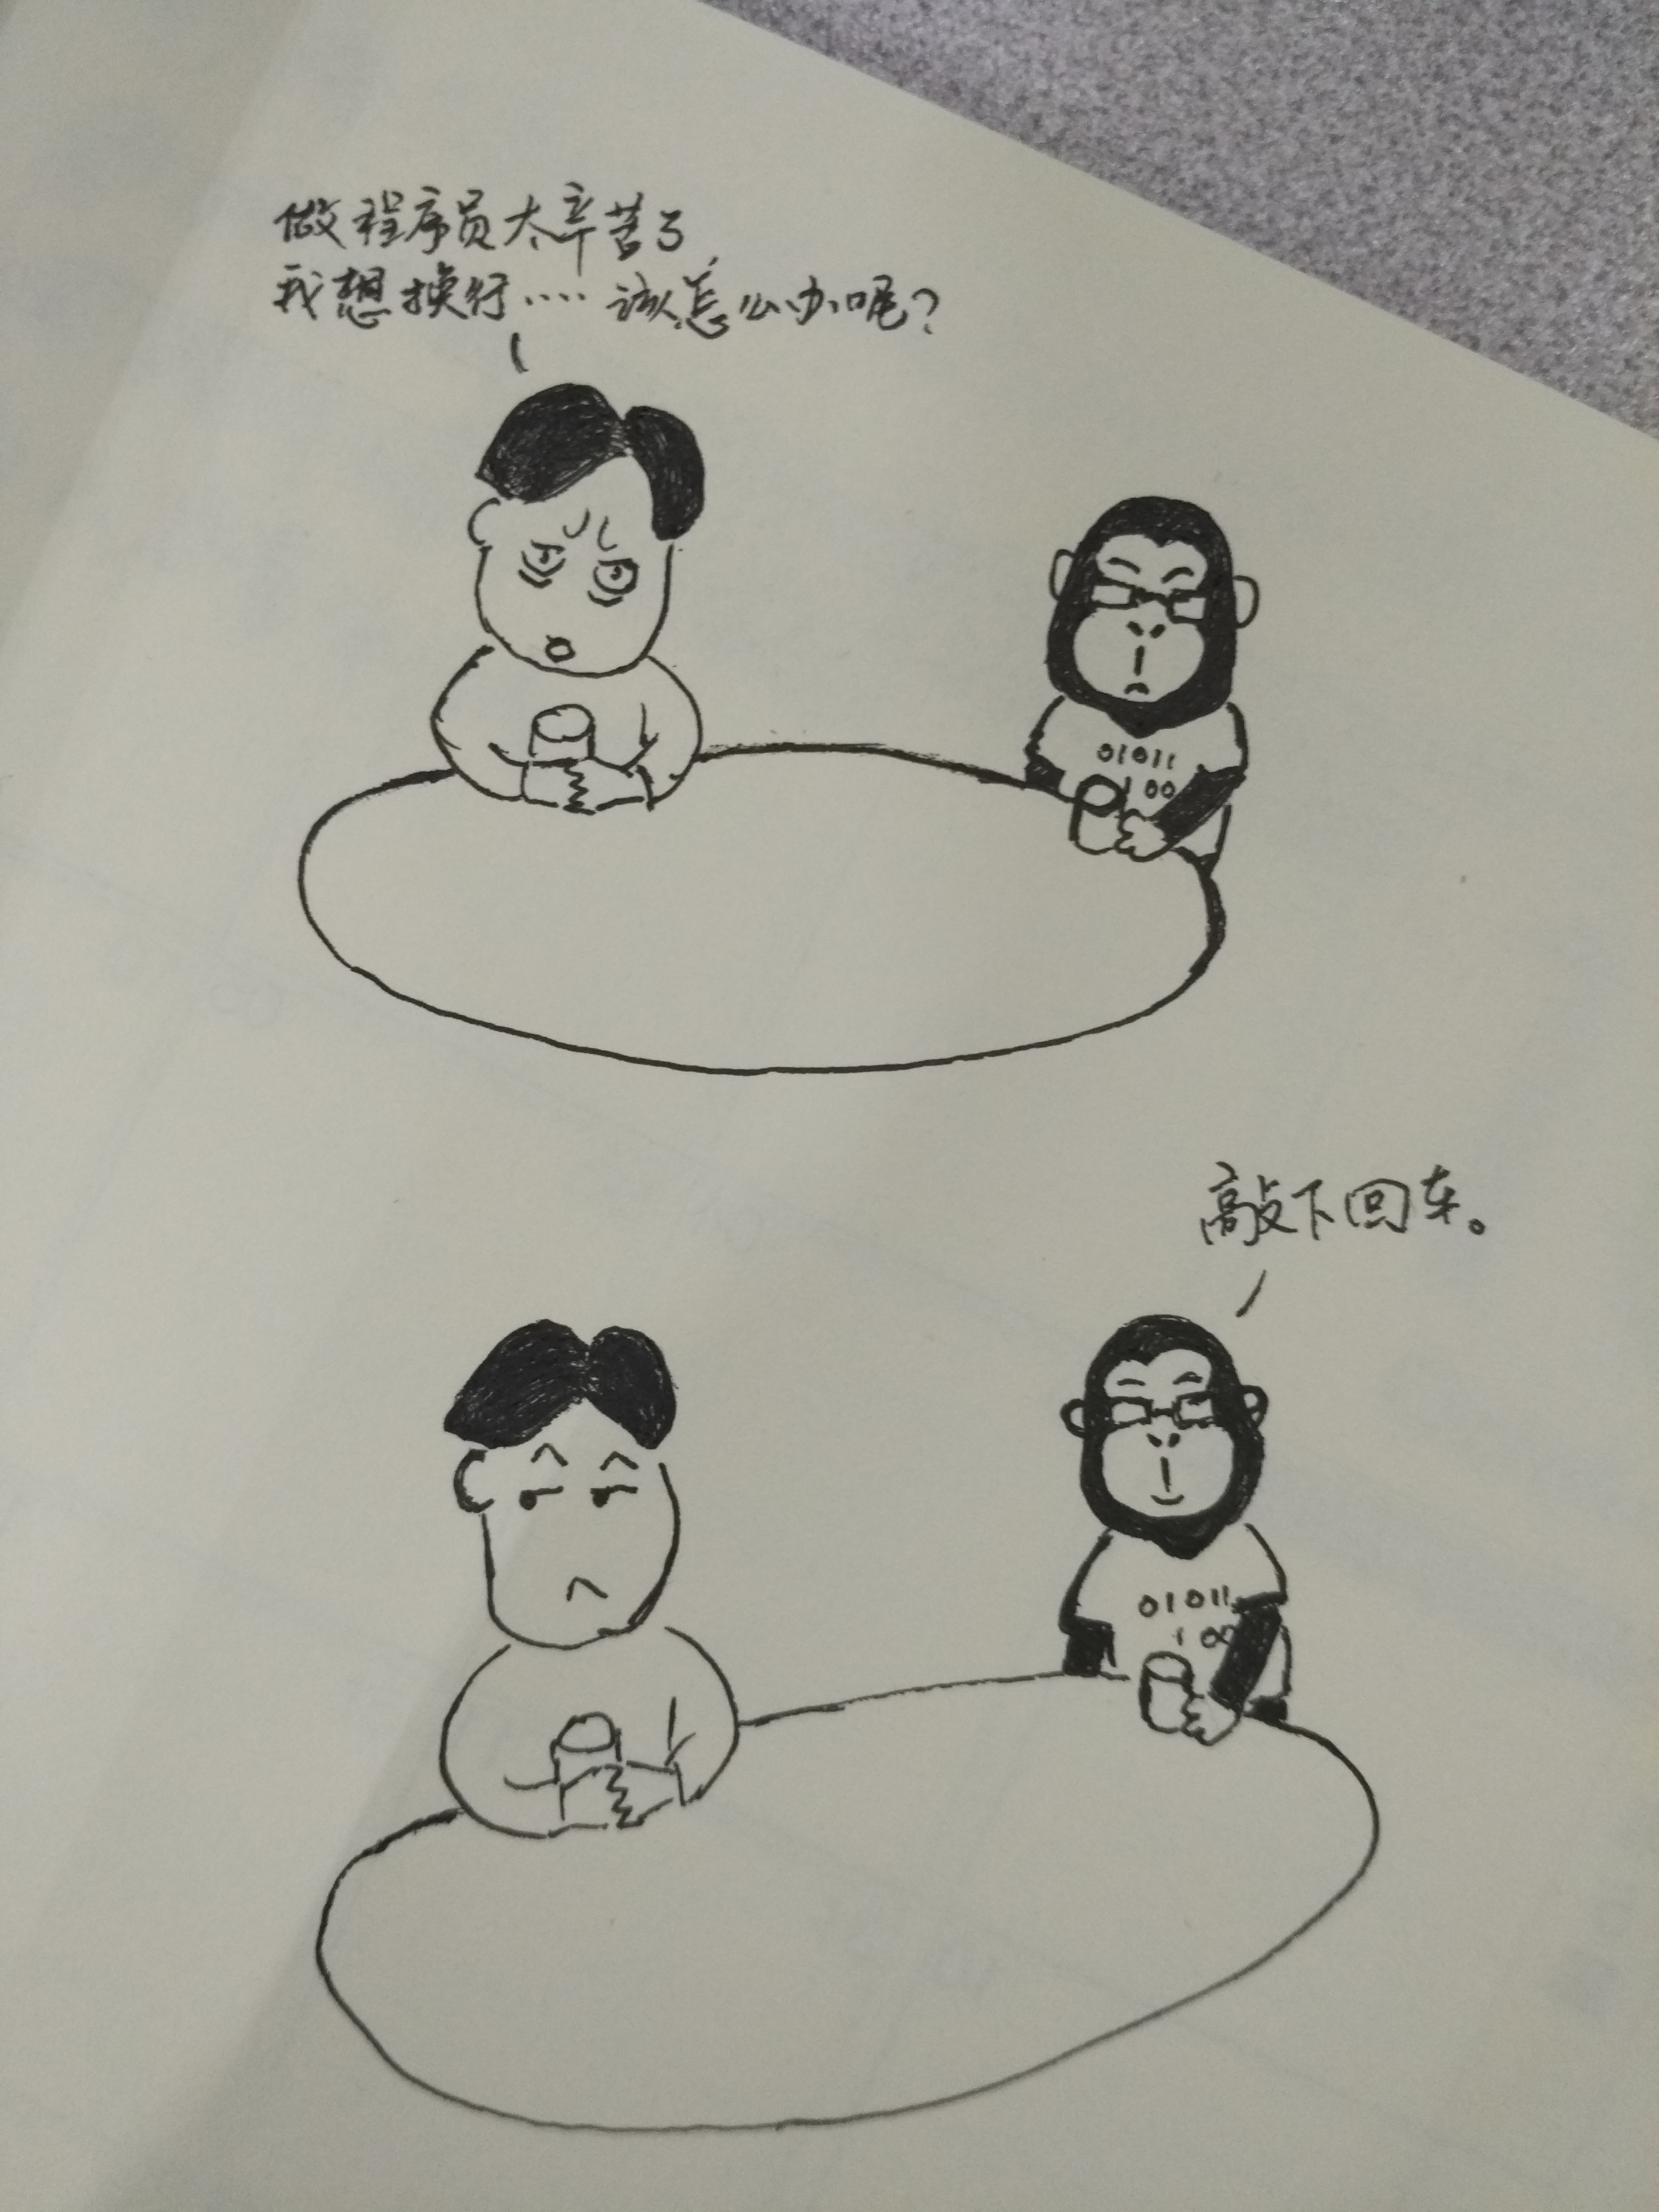 做程序员太辛苦了
我想换行……该怎么办呢？
01011
100
敲下回车。
01011
100